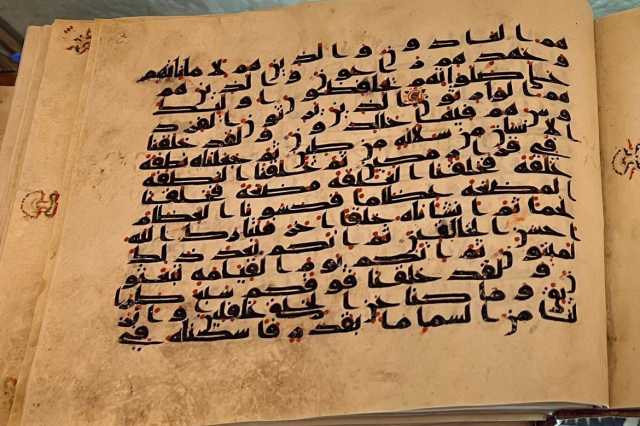 هم العادون والذين هم لاماناتهم
وعهدهم راعون والذين هم
على صلواتهم يحافظون اولئك
هم الوارثون الذين يرثون الفرد
وس هم فيها خالدون ولقد خلقنا
الانسان من سلاله من طين ثم جعلناه نطفه
في قرار مكين ثم خلقنا النطفه
علقه فخلقنا العلقه مضغه فخلقنا
المضغه عظاما فكسونا العظام
لحما ثم انشاناه خلقا اخر فتبارك الله
احسن الخالقين ثم انكم بعد ذلك
لميتون ثم انكم يوم القيامه تبعثو
ن ولقد خلقنا فوقكم سبع طرا
ئق وما كنا عن الخلق غافلين وانز
لنا من السما ما بقدر فاسكناه في